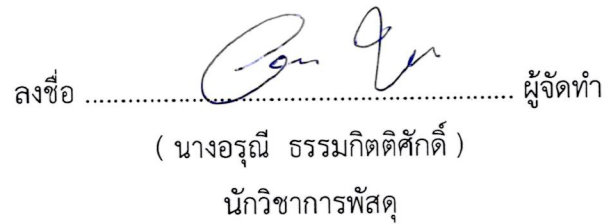 ลงชื่อ ................................................................ ผู้จัดทำ
( นางอรุณี ธรรมกิตติศักดิ์ )
นักวิชาการพัสดุ